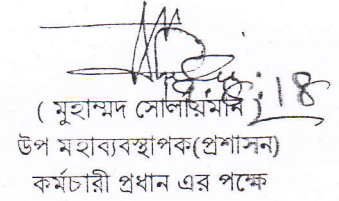 ( মুহাম্মদ সোলায়মান )
উপ মহাব্যবস্থাপক(প্রশাসন)
কর্মচারী প্রধান এর পক্ষে